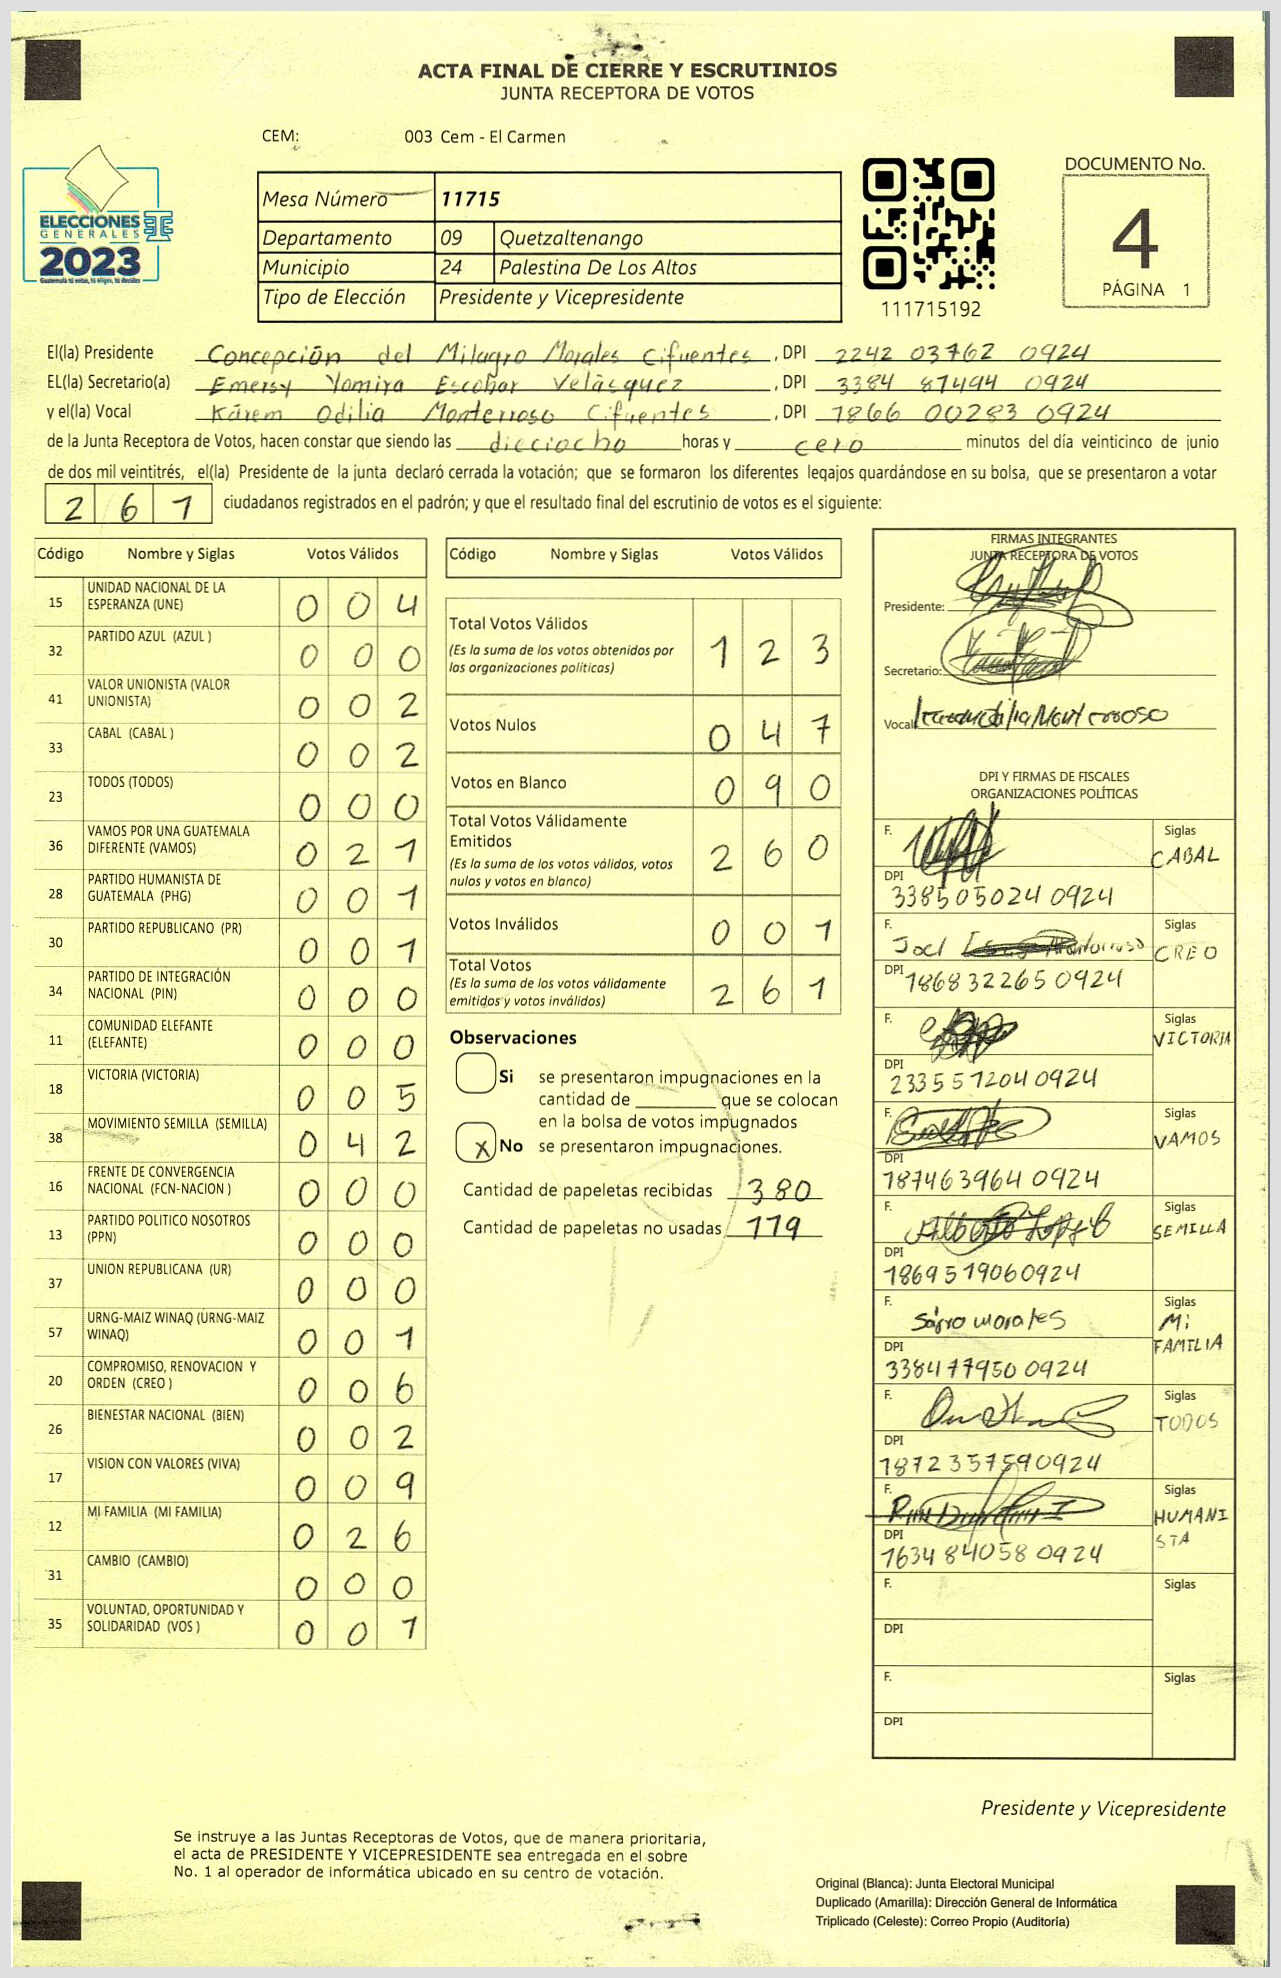 ACTA FINAL DE CIERRE Y ESCRUTINIOS
JUNTA RECEPTORA DE VOTOS
CEM: 003 Cem - El Carmen
ELECCIONES
GENERALES
2023
Guatemala tú votas, tú eliges, tú decides
Mesa Número 11715
Departamento 09 Quetzaltenango
Municipio 24 Palestina De Los Altos
Tipo de Elección Presidente y Vicepresidente
111715192
DOCUMENTO No.
4
PÁGINA 1
El(la) Presidente Concepción del Milagro Morales Cifuentes, DPI 2242 03762 0924
EL(la) Secretario(a) Emersy Yomira Escobar Velásquez, DPI 3384 87494 0924
y el(la) Vocal Kárem Odilia Monterroso Cifuentes, DPI 1866 00283 0924
de la Junta Receptora de Votos, hacen constar que siendo las dieciocho horas y cero minutos del día veinticinco de junio
de dos mil veintitrés, el(la) Presidente de la junta declaró cerrada la votación; que se formaron los diferentes legajos guardándose en su bolsa, que se presentaron a votar
261 ciudadanos registrados en el padrón; y que el resultado final del escrutinio de votos es el siguiente:
Código Nombre y Siglas Votos Válidos
15 UNIDAD NACIONAL DE LA ESPERANZA (UNE) 0 0 4
32 PARTIDO AZUL (AZUL ) 0 0 0
41 VALOR UNIONISTA (VALOR UNIONISTA) 0 0 2
33 CABAL (CABAL ) 0 0 2
23 TODOS (TODOS) 0 0 0
36 VAMOS POR UNA GUATEMALA DIFERENTE (VAMOS) 0 2 1
28 PARTIDO HUMANISTA DE GUATEMALA (PHG) 0 0 1
30 PARTIDO REPUBLICANO (PR) 0 0 1
34 PARTIDO DE INTEGRACIÓN NACIONAL (PIN) 0 0 0
11 COMUNIDAD ELEFANTE (ELEFANTE) 0 0 0
18 VICTORIA (VICTORIA) 0 0 5
38 MOVIMIENTO SEMILLA (SEMILLA) 0 4 2
16 FRENTE DE CONVERGENCIA NACIONAL (FCN-NACION ) 0 0 0
13 PARTIDO POLITICO NOSOTROS (PPN) 0 0 0
37 UNION REPUBLICANA (UR) 0 0 0
57 URNG-MAIZ WINAQ (URNG-MAIZ WINAQ) 0 0 1
20 COMPROMISO, RENOVACION Y ORDEN (CREO ) 0 0 6
26 BIENESTAR NACIONAL (BIEN) 0 0 2
17 VISION CON VALORES (VIVA) 0 0 9
12 MI FAMILIA (MI FAMILIA) 0 2 6
31 CAMBIO (CAMBIO) 0 0 0
35 VOLUNTAD, OPORTUNIDAD Y SOLIDARIDAD (VOS ) 0 0 1
Código Nombre y Siglas Votos Válidos
Total Votos Válidos 1 2 3
(Es la suma de los votos obtenidos por
las organizaciones políticas)
Votos Nulos 0 4 7
Votos en Blanco 0 9 0
Total Votos Válidamente
Emitidos 2 6 0
(Es la suma de los votos válidos, votos
nulos y votos en blanco)
Votos Inválidos 0 0 1
Total Votos
(Es la suma de los votos válidamente
emitidos y votos inválidos) 2 6 1
Observaciones
Si se presentaron impugnaciones en la
cantidad de ________ que se colocan
en la bolsa de votos impugnados
x No se presentaron impugnaciones.
Cantidad de papeletas recibidas 380
Cantidad de papeletas no usadas 119
FIRMAS INTEGRANTES
JUNTA RECEPTORA DE VOTOS
Presidente:
Secretario:
Vocal
DPI Y FIRMAS DE FISCALES
ORGANIZACIONES POLÍTICAS
F. Siglas CABAL
DPI 338505024 0924
F. Joel Siglas CREO
DPI 186832265 0924
F. Siglas VICTORIA
DPI 233551204 0924
F. Siglas VAMOS
DPI 187463964 0924
F. Alberto Siglas SEMILLA
DPI 186951906 0924
F. morales Siglas Mi FAMILIA
DPI 338477950 0924
F. Siglas TODOS
DPI 187235759 0924
F. Siglas HUMANISTA
DPI 163484058 0924
F. Siglas
DPI
F. Siglas
DPI
Presidente y Vicepresidente
Se instruye a las Juntas Receptoras de Votos, que de manera prioritaria,
el acta de PRESIDENTE Y VICEPRESIDENTE sea entregada en el sobre
No. 1 al operador de informática ubicado en su centro de votación.
Original (Blanca): Junta Electoral Municipal
Duplicado (Amarilla): Dirección General de Informática
Triplicado (Celeste): Correo Propio (Auditoría)